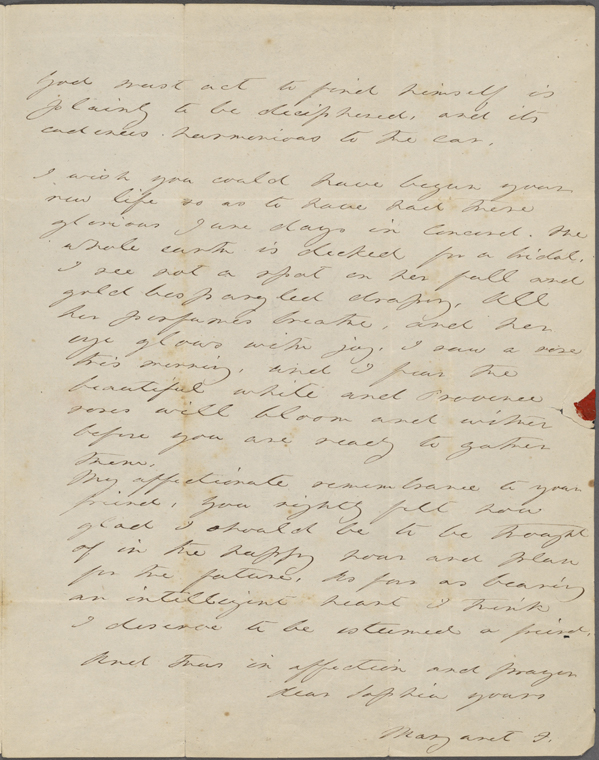 God must act to find himself is
plainly to be deciphered, and its
cadences harmonious to the ear.
I wish you could have begun your
new life so as to have had these
glorious June days in Concord. The
whole earth is decked for a bridal.
I see not a spot on her full and
gold bespangled drapery. All
her perfumes breathe, and her
eye glows with joy. I saw a rose
this morning, and I fear the
beautiful white and Provence
roses will bloom and wither
before you are ready to gather
them.
My affectionate remembrance to your
friend. You rightly felt how
glad I should be to be thought
of in the happy hour and plan
for the future. As far as bearing
an intelligent heart I think
I deserve to be esteemed a friend.
And thus in affection and prayer
dear Sophia yours
Margaret F.